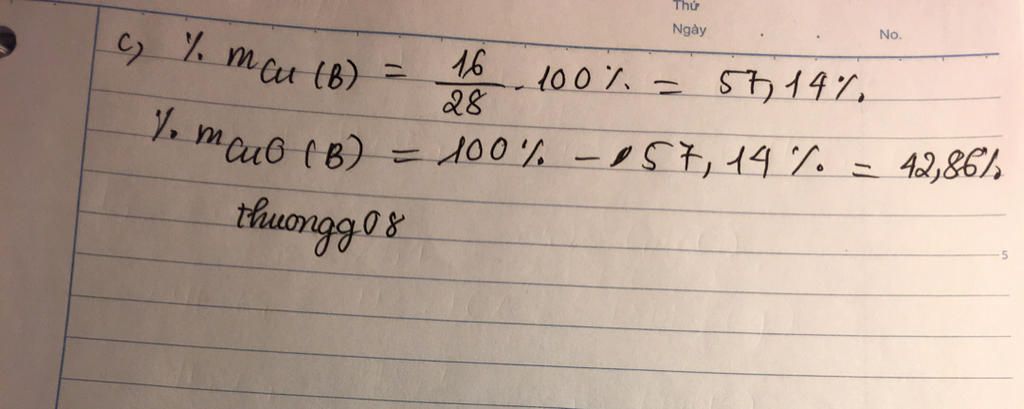 Thứ
Ngày . . No.
c, % mCu (B) = 16/28 . 100% = 57,14%.
% mCuO (B) = 100% - 57,14% = 42,86%
thuongg08
5